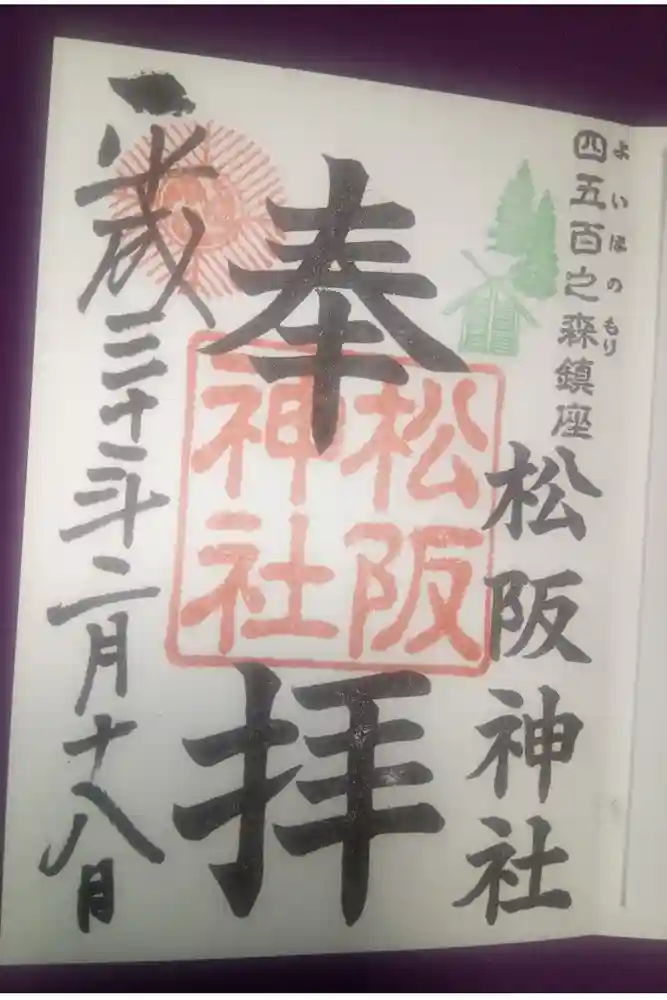 四五百之森鎮座
よいほの もり
松阪神社
奉拝
松阪
神社
平成三十一年二月十八日